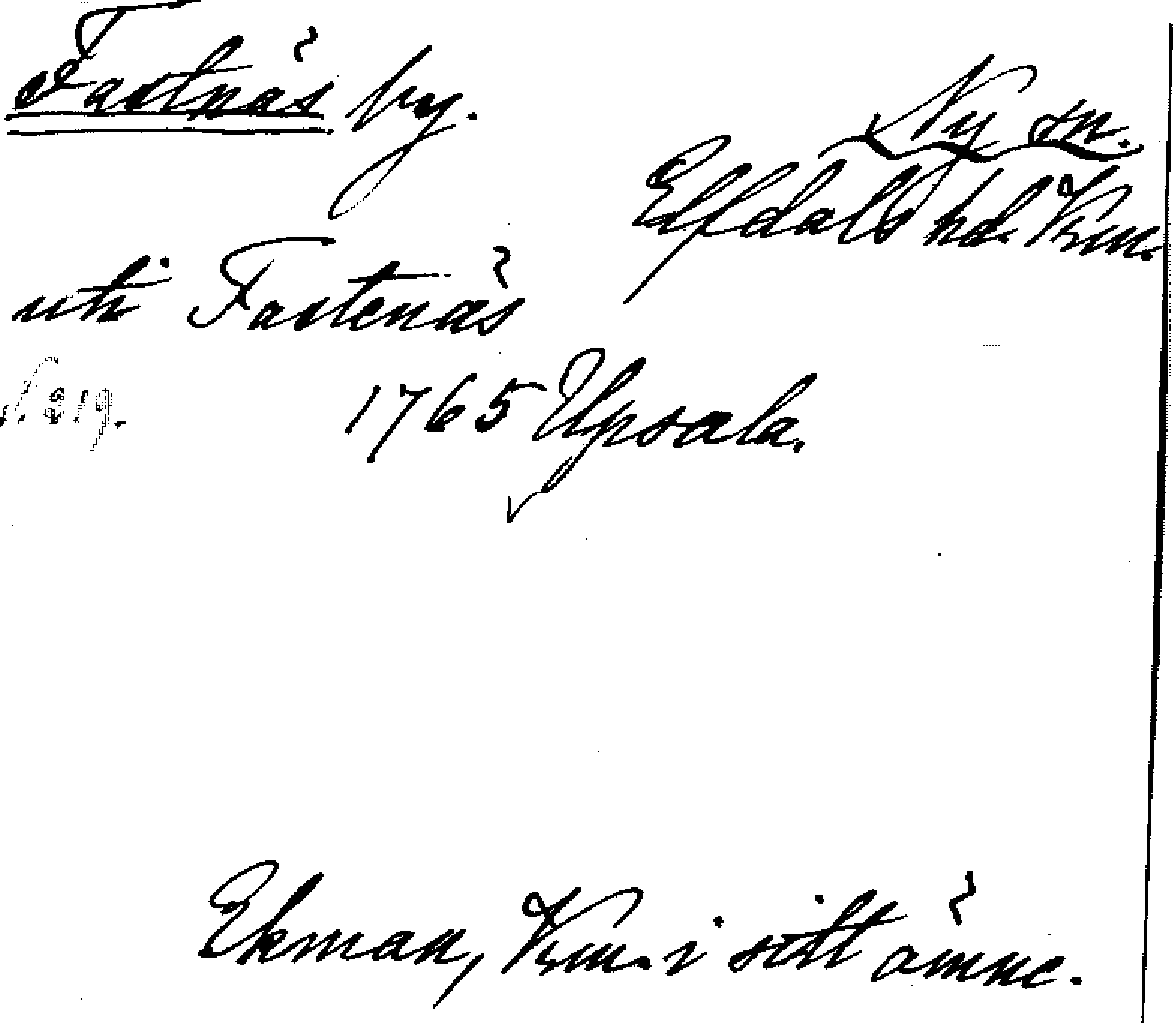 Fastnäs by.
Ny sn.
Elfdals hd. Vrm.
uti Fastenäs
1765 Upsala.
Ekman, Vrm. i sitt ämne.